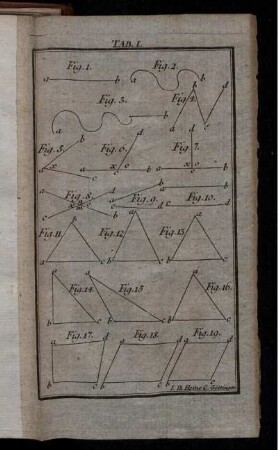 TAB. I.
Fig. 1. Fig. 2.
a b a b
Fig. 3. Fig. 4. b d
a b a c
Fig. 5. b Fig. 6. d Fig. 7. d
a x c a x o b a x o b
c c
a d b a b
Fig. 8. Fig. 9. Fig. 10.
c b a c d c d
Fig. 11. a Fig. 12. a Fig. 13. a
b c b c b c
a Fig. 14. a Fig. 15 a Fig. 16.
b c b c b c
Fig. 17. Fig. 18. Fig. 19.
a d a d a d
b c b c b c